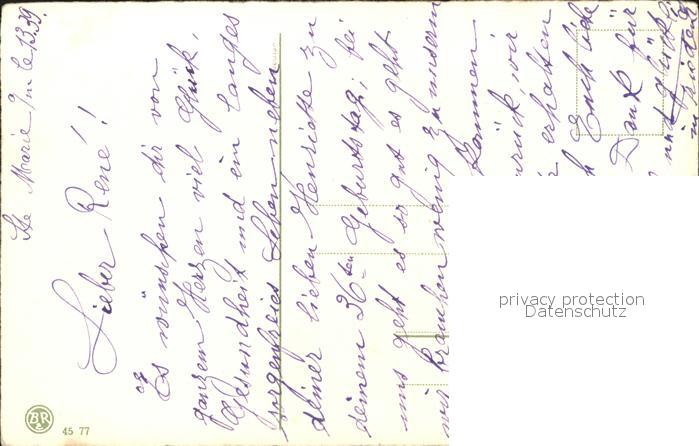 Ste Marie a/m le 1.3.39.
Lieber René!
Es wünschen dir von
ganzem Herzen viel Glück,
Gesundheit und ein langes
sorgenfreies Leben neben
deiner lieben Henriette zu
deinem 36-ten Geburtstag, bei
uns geht es so gut es geht
wir brauchen wenig zu unserm
kommen
zurück wir
erhalten
Euch liebe
Dank für
und
privacy protection
Datenschutz
BR
45 77